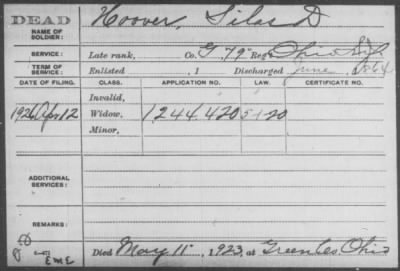 DEAD
NAME OF SOLDIER:
Hoover, Silas D
SERVICE:
Late rank, Co. G 79" Reg't Ohio Inf
TERM OF SERVICE:
Enlisted , 1 Discharged June , 1864
DATE OF FILING. CLASS. APPLICATION NO. LAW. CERTIFICATE NO.
Invalid,
1926 Apr 12 Widow, 1244420 5-1-20
Minor,
ADDITIONAL SERVICES:
REMARKS:
EME
Died May 11 , 1923, at Ohio